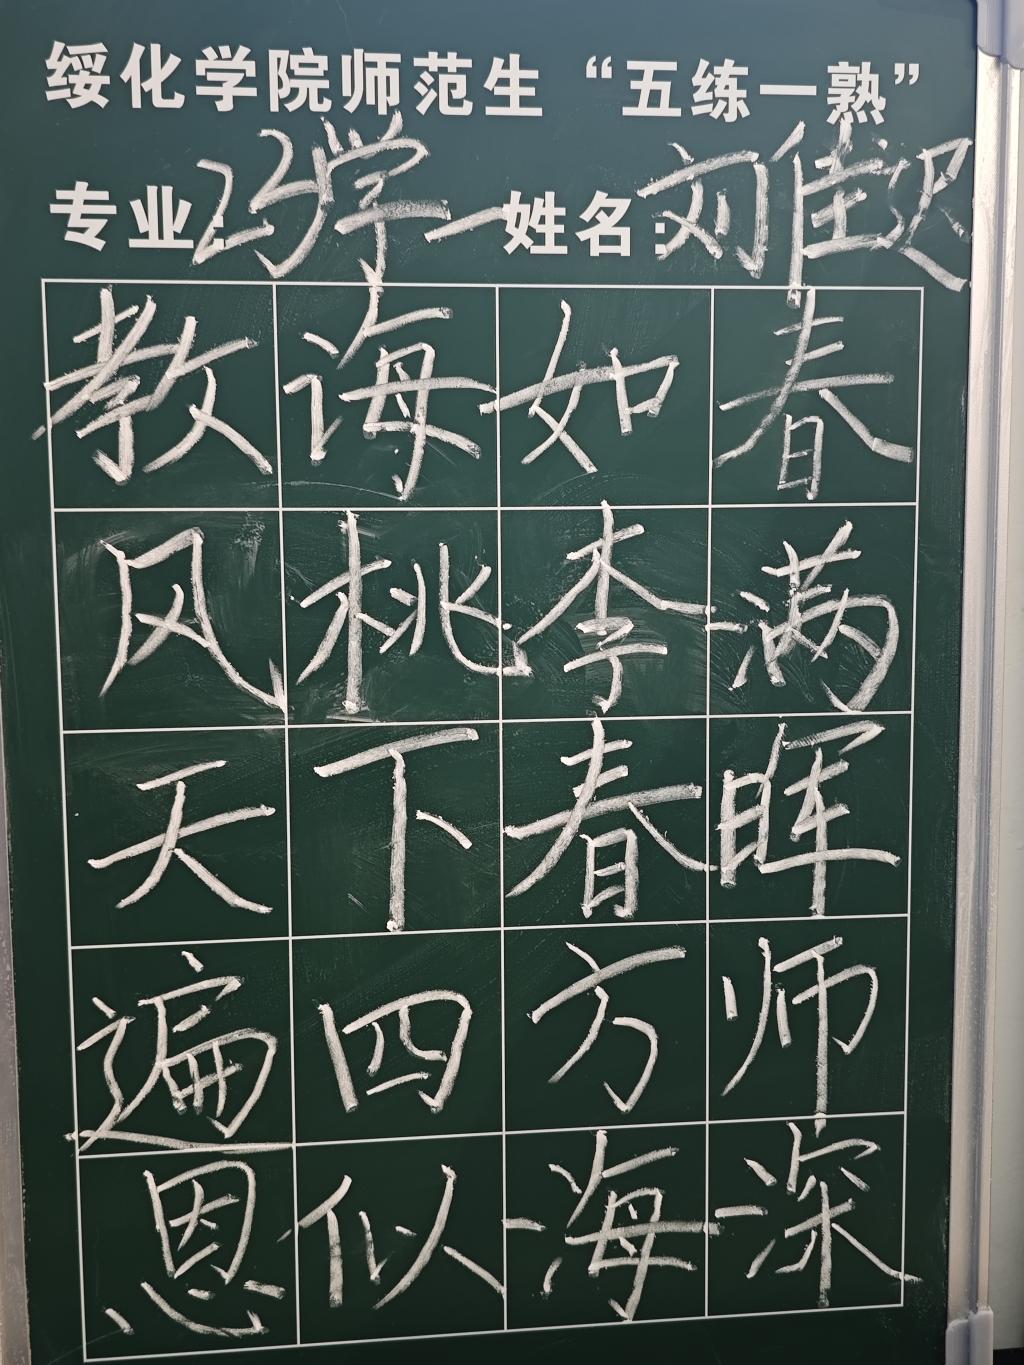 绥化学院师范生“五练一熟”
专业:23学一 姓名:刘佳迟
教诲如春
风桃李满
天下春晖
遍四方师
恩似海深